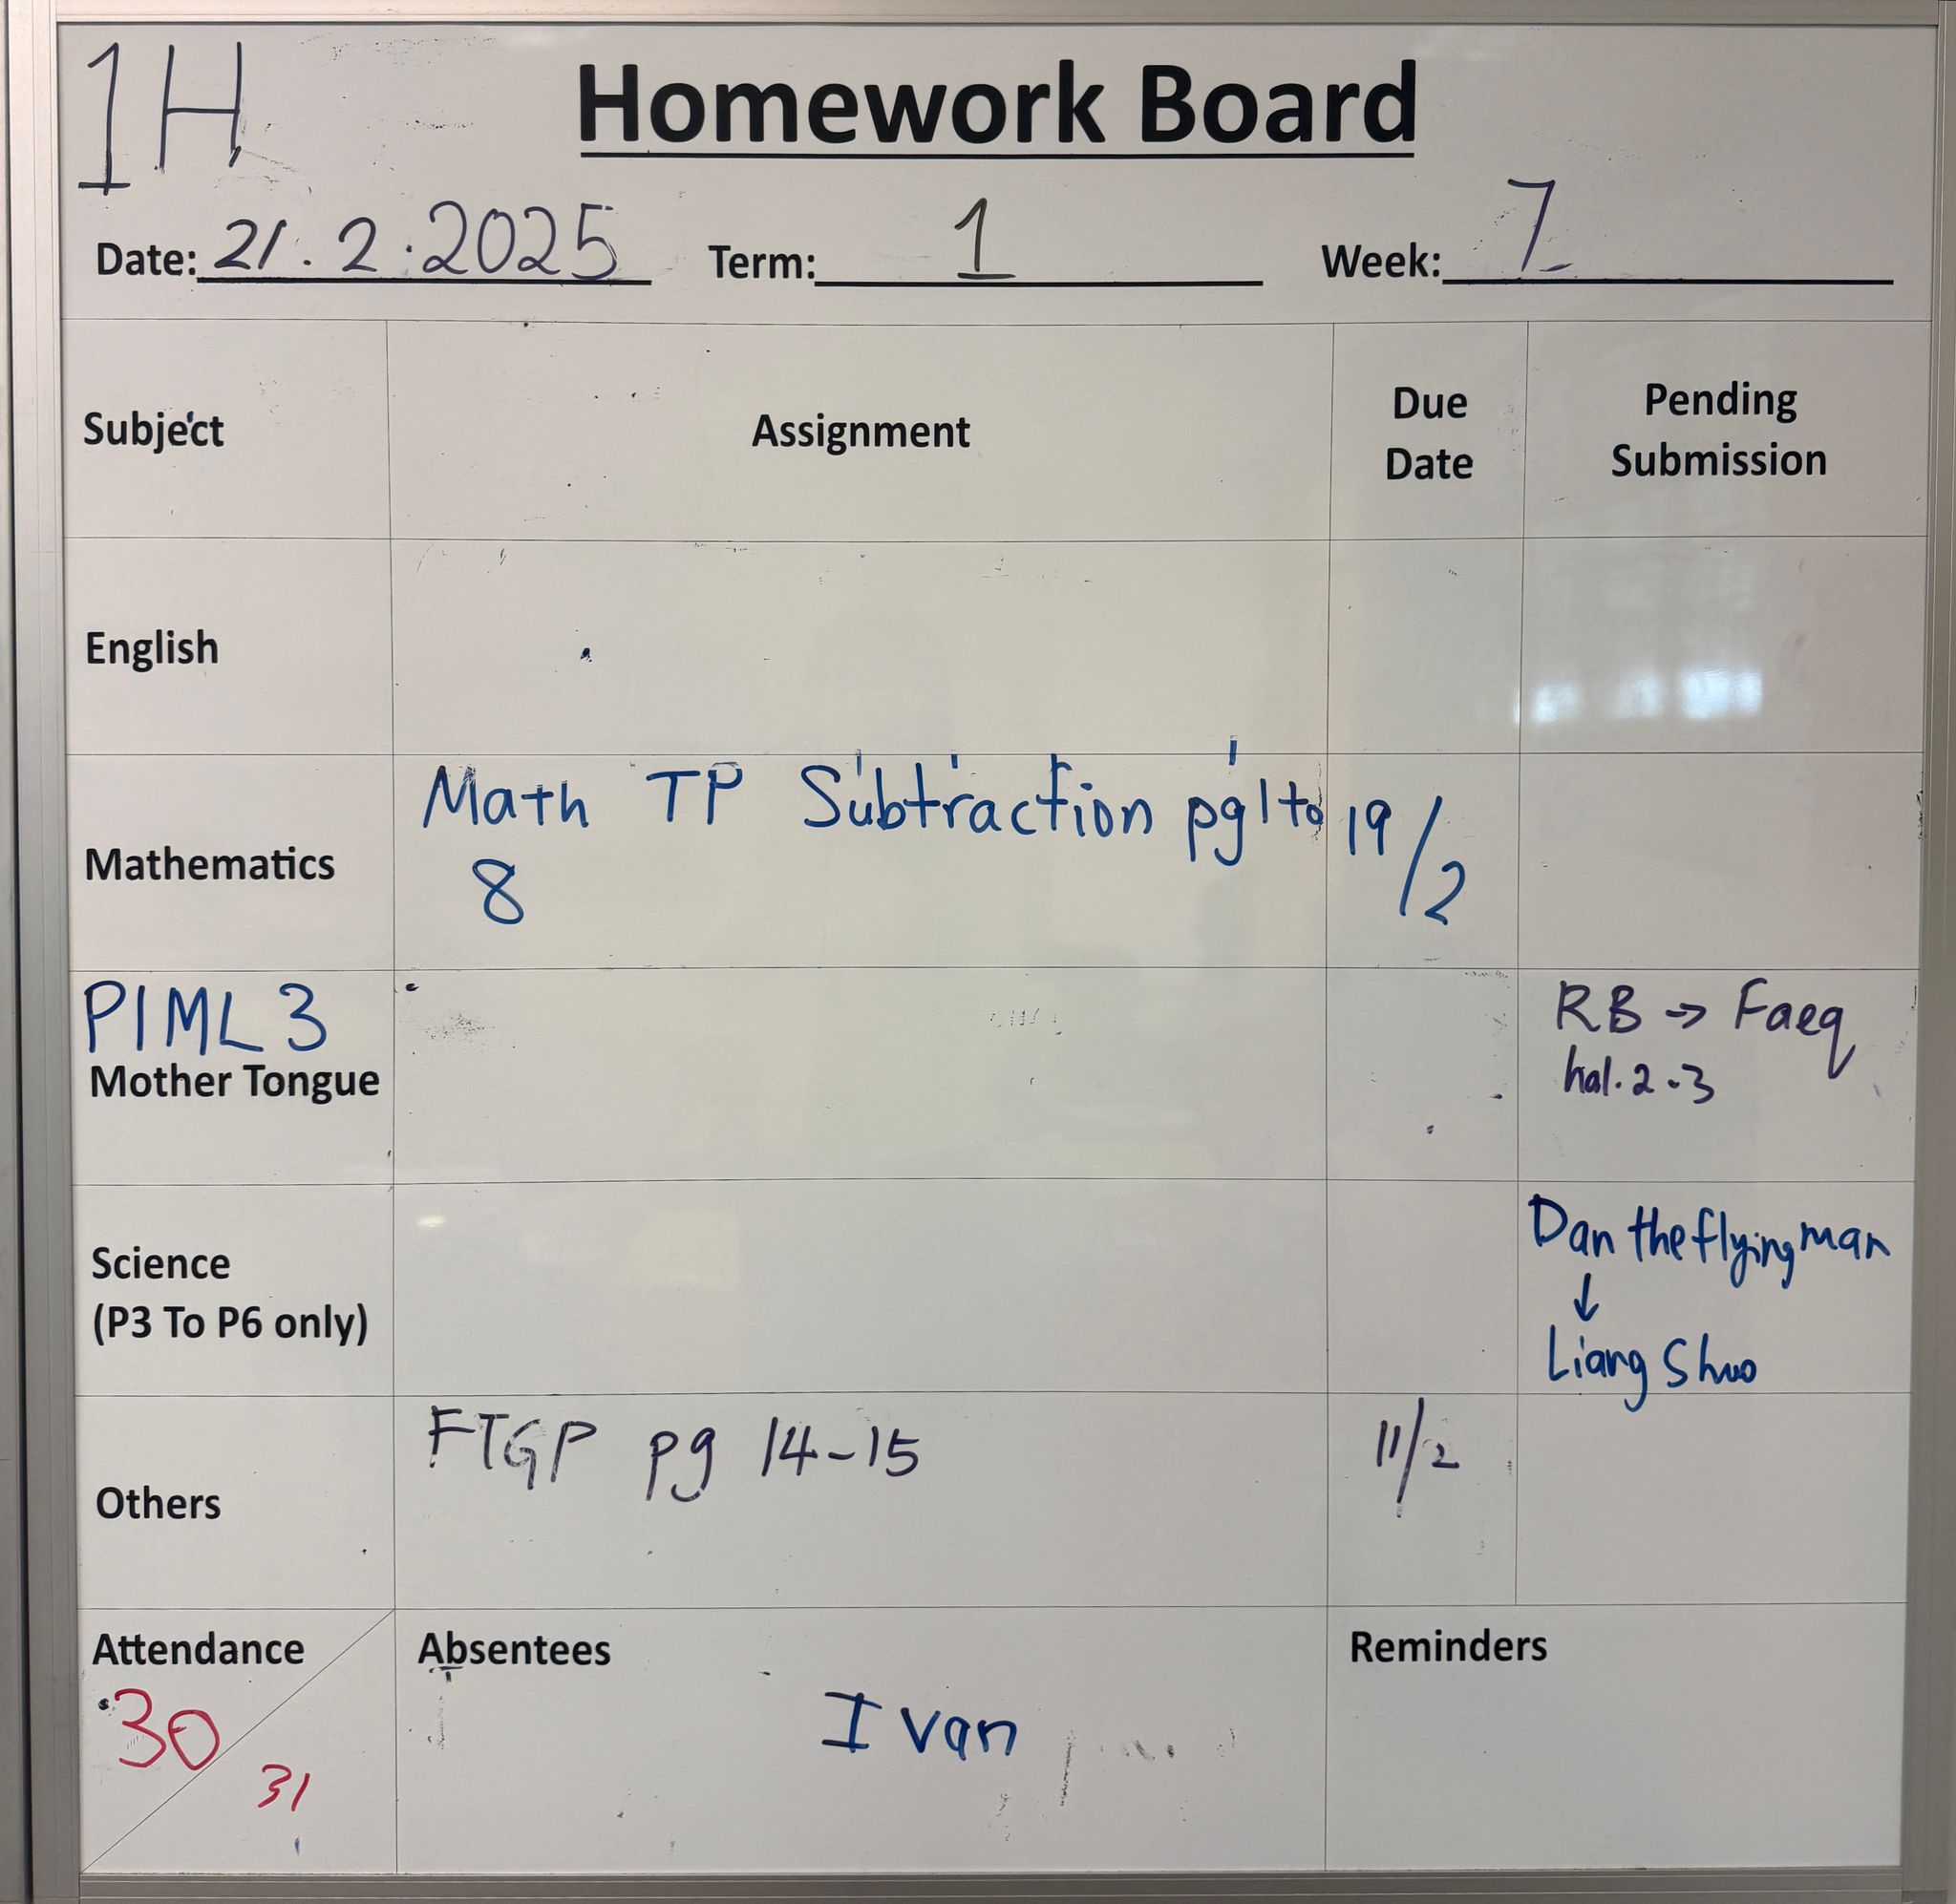 1H
Homework Board
Date: 21.2.2025 Term: 1 Week: 7
Subject Assignment Due Date Pending Submission
English
Mathematics Math TP Subtraction pg 1 to 8 19/2
PIML 3
Mother Tongue RB → Faeq
hal. 2-3
Science
(P3 To P6 only) Dan the flying man
↓
Liang Shuo
Others FTGP pg 14-15 11/2
Attendance Absentees Reminders
30 Ivan
31